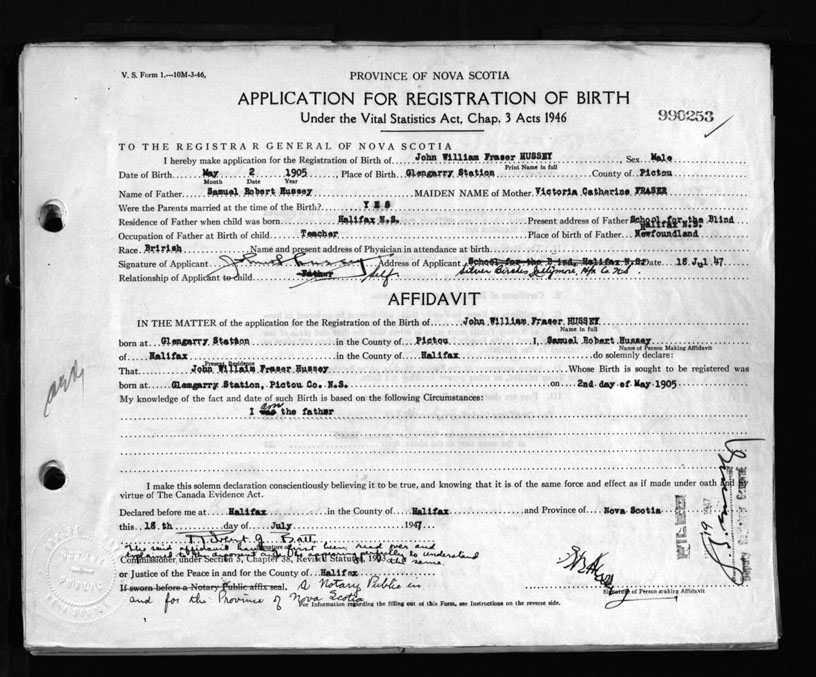 V. S. Form 1.—10M-3-46,
PROVINCE OF NOVA SCOTIA
APPLICATION FOR REGISTRATION OF BIRTH
Under the Vital Statistics Act, Chap. 3 Acts 1946
990253
TO THE REGISTRAR GENERAL OF NOVA SCOTIA
I hereby make application for the Registration of Birth of John William Fraser HUSSEY, Sex Male
Print Name in full
Date of Birth May 2 1905, Place of Birth Glengarry Station County of Pictou
Month Date Year
Name of Father Samuel Robert Hussey MAIDEN NAME of Mother Victoria Catharine FRASER
Were the Parents married at the time of the Birth? YES
Residence of Father when child was born Halifax N.S. Present address of Father School for the Blind
Halifax N.S.
Occupation of Father at Birth of child Teacher Place of birth of Father Newfoundland
Race Brirish Name and present address of Physician in attendance at birth
Signature of Applicant Address of Applicant School for the Blind, Halifax N.S. Date 18 Jul 47
Relationship of Applicant to child Father Self Silver Birches Jollymore, Hfx Co
AFFIDAVIT
IN THE MATTER of the application for the Registration of the Birth of John William Fraser HUSSEY
Name in full
born at Glengarry Station in the County of Pictou I, Samuel Robert Hussey
Name of Person Making Affidavit
of Halifax in the County of Halifax do solemnly declare:
Present Residence
That John Willaim Fraser Hussey Whose Birth is sought to be registered was
born at Glengarry Station, Pictou Co. N.S. on 2nd day of May 1905
My knowledge of the fact and date of such Birth is based on the following Circumstances:
I was am the father
I make this solemn declaration conscientiously believing it to be true, and knowing that it is of the same force and effect as if made under oath and by
virtue of The Canada Evidence Act.
Declared before me at Halifax in the County of Halifax and Province of Nova Scotia
this 18th day of July 1947
The said affidavit having first been read over and
explained to the deponent and he appearing perfectly to understand
the same.
Commissioner under Section 3, Chapter 38, Revised Statutes, 1923
or Justice of the Peace in and for the County of Halifax
If sworn before a Notary Public affix seal. A Notary Public in
and for the Province of Nova Scotia
Signature of Person making Affidavit
For Information regarding the filling out of this Form, see Instructions on the reverse side.